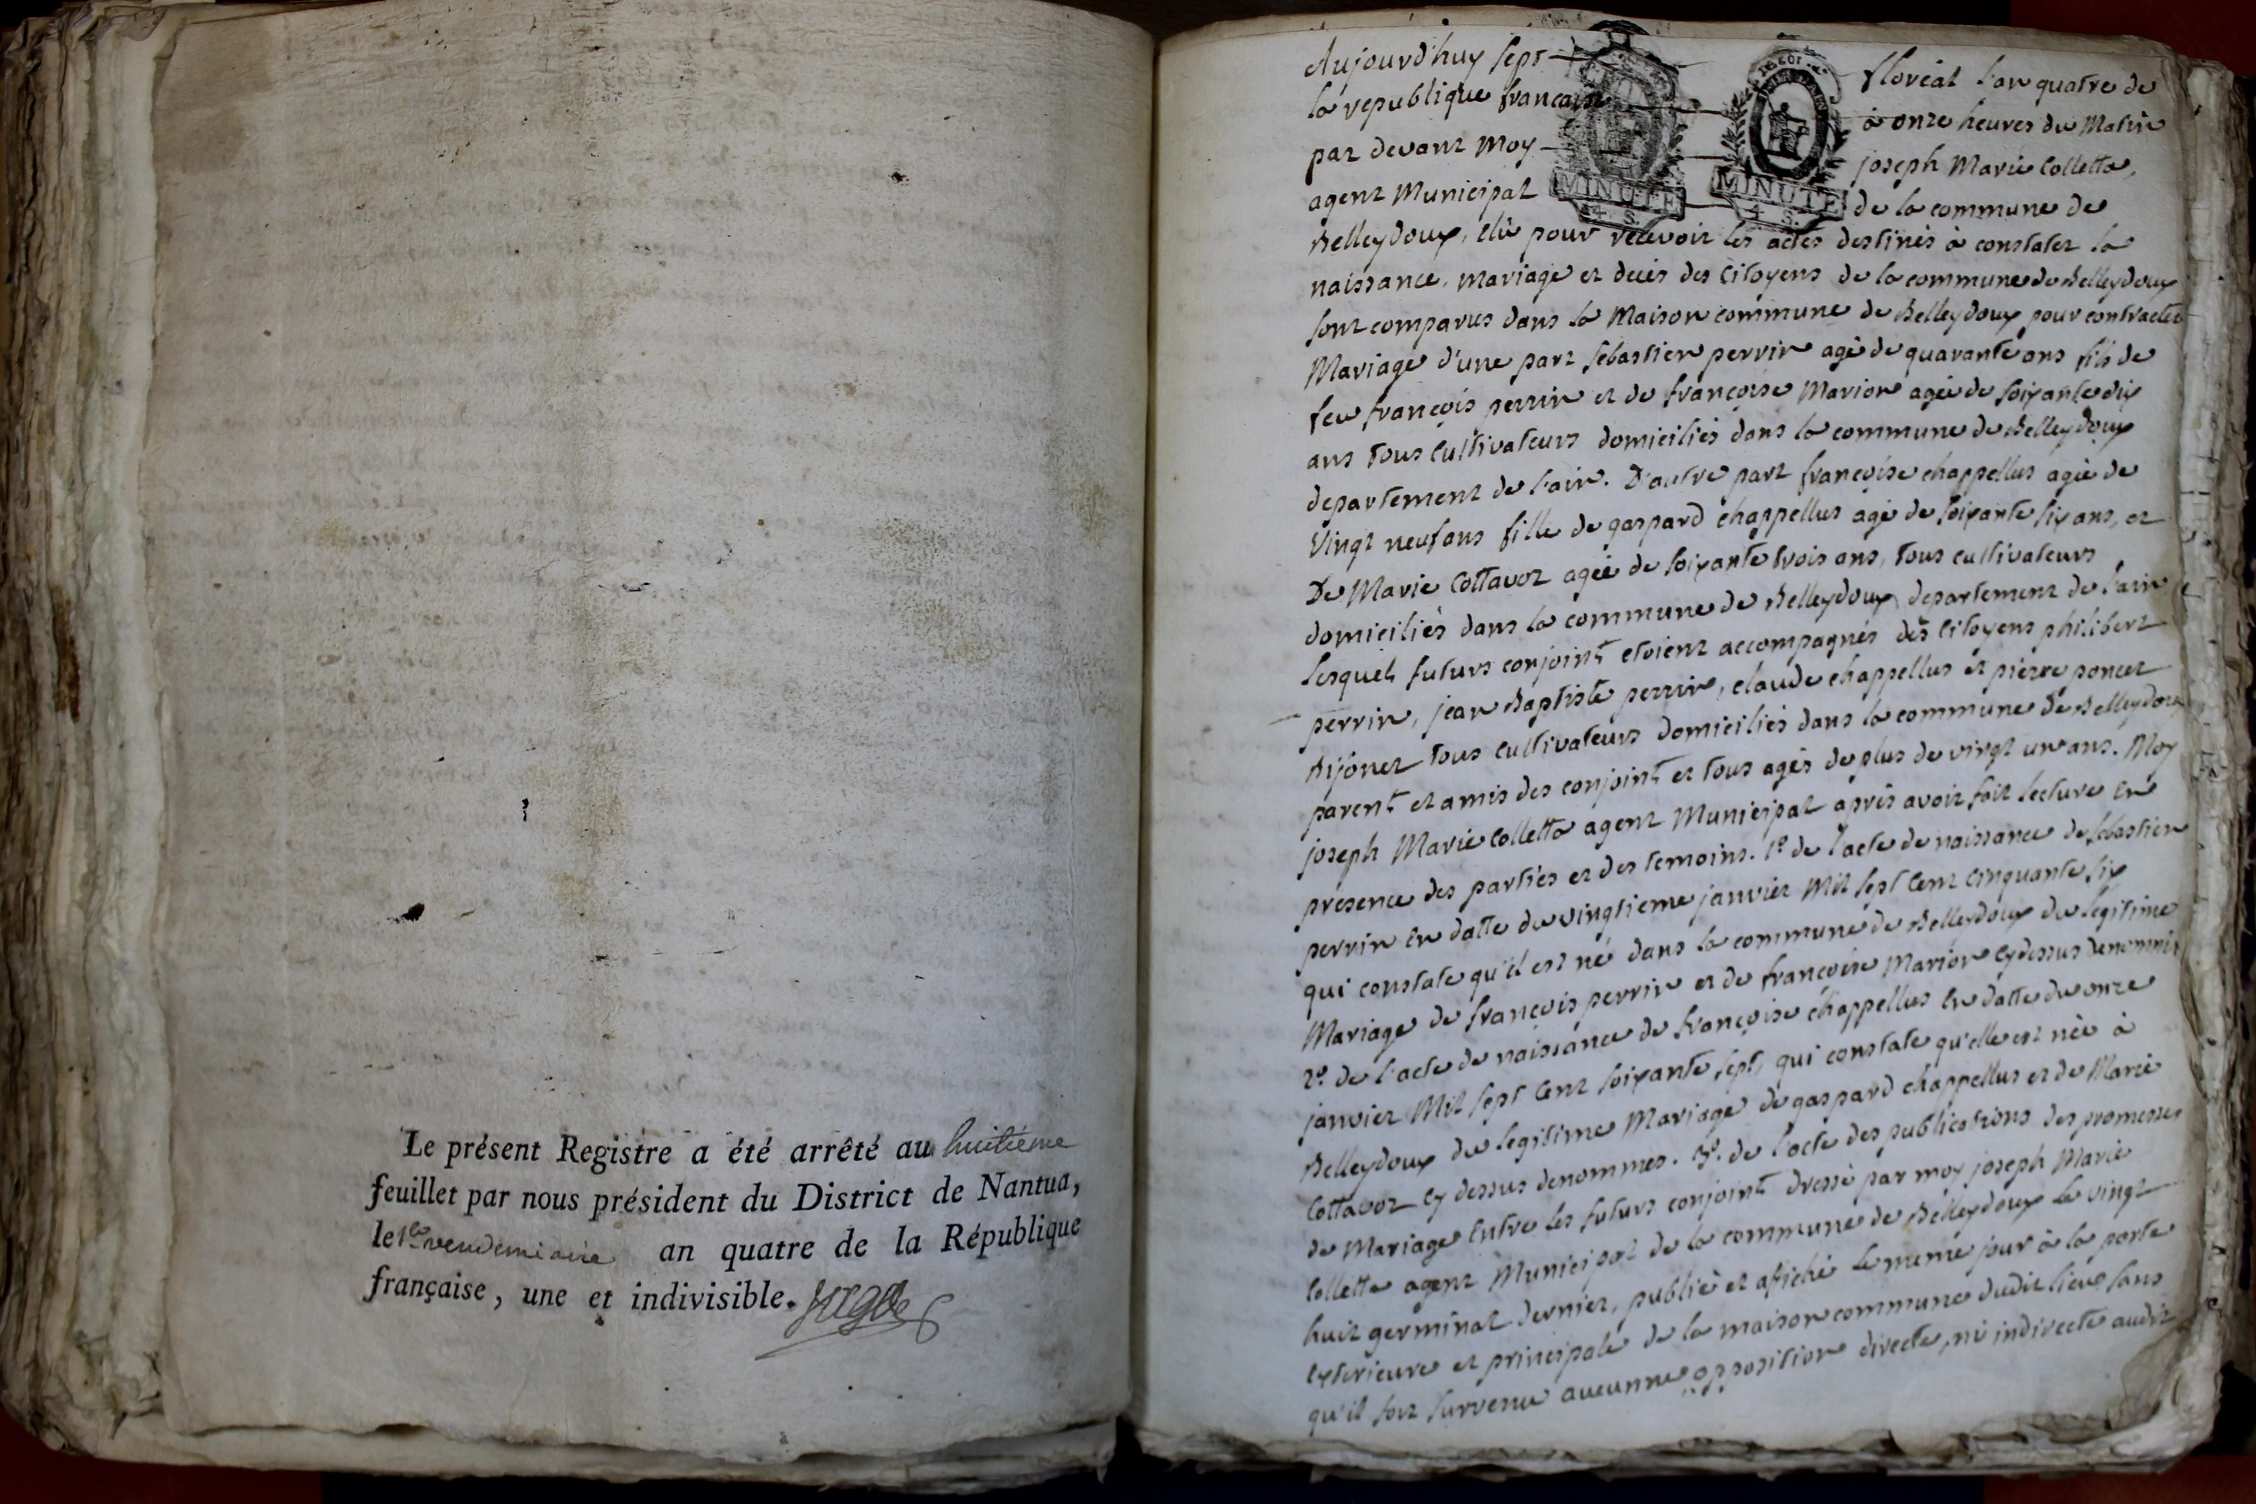 Le présent Registre a été arrêté au huitième
feuillet par nous président du District de Nantua,
le 1er vendemiaire an quatre de la République
française, une et indivisible.
Aujourd'huy sept floréal l'an quatre de
la republique francaise à onze heures du Matin
par devant Moy joseph Marie Colletta,
agent Municipal de la commune de
MINUTE
4 S.
MINUTE
4 S.
Belleydoux, élù pour recevoir les actes destinés à constater la
naissance, mariage et décés des Citoyens de la commune de Belleydoux
sont comparus dans la Maison commune de Belleydoux pour contracter
Mariage d'une part sebastien perrin agé de quarante ans fils de
feu françois perrin et de françoise Marion agée de soixante dix
ans tous Cultivateurs domiciliés dans la commune de Belleydoux
departement de l'ain. D'autre part françoise chappellus agée de
Vingt neuf ans fille de gaspard chappellus agé de soixante six ans, et
De Marie Cottavoz agée de soixante trois ans, tous cultivateurs
domiciliés dans la commune de Belleydoux departement de l'ain
lesquels futurs conjoints etoient accompagnés des Citoyens philibert
perrin, jean Baptiste perrin, claude chappellus et pierre poncet
dijonet tous cultivateurs domiciliés dans la commune de Belleydoux
parents et amis des conjoints et tous agés de plus de vingt un ans. Moy
joseph Marie Colletta agent Municipal après avoir fait lecture en
presence des parties et des temoins. 1º. de l'acte de naissance de sebastien
perrin en datte du vingtieme janvier Mil sept Cent Cinquante six
qui constate qu'il est né dans la commune de Belleydoux du legitime
Mariage de françois perrin et de françoise Marion Cy dessus denommés
2º. de l'acte de naissance de françoise chappellus en datte du onze
janvier Mil sept Cent soixante sept, qui constate qu'elle est née à
Belleydoux du legitime Mariage de gaspard chappellus et de Marie
Cottavoz Cy dessus denommes. 3º. de l'acte des publications des promesses
de Mariage Entre les futurs conjoints dressé par moy joseph Marie
Colletta agent Municipal de la commune de Belleydoux le vingt
huit germinal dernier, publié et afiché le meme jour à la porte
exterieure et principale de la maison commune dudit lieu sans
qu'il soit survenu aucunne opposition directe, ni indirecte audit